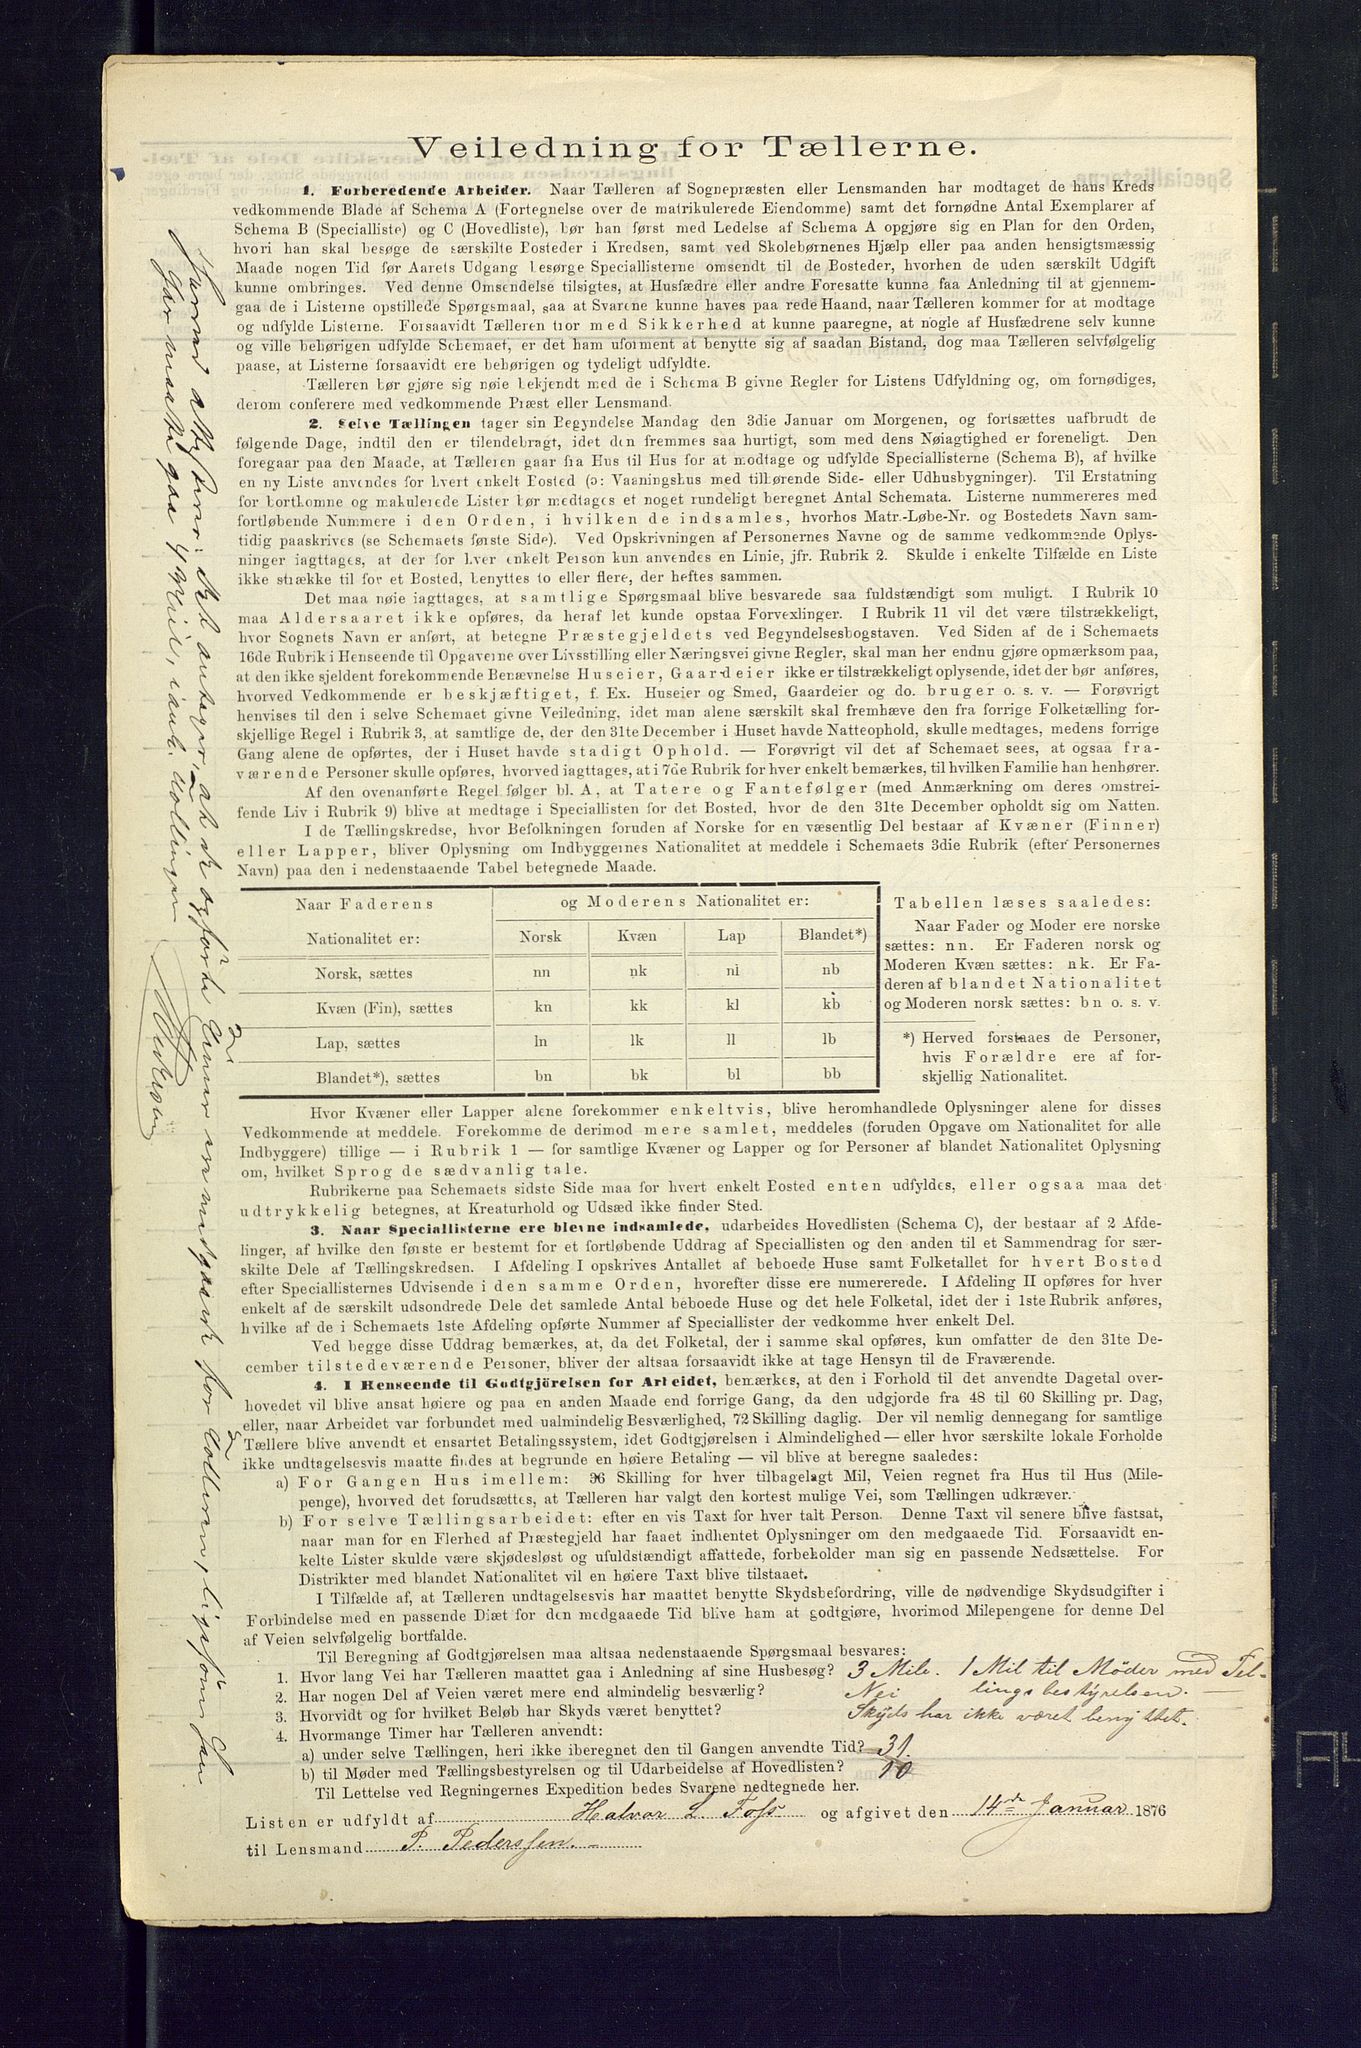 Veiledning for Tællerne.
1. Forberedende Arbeider. Naar Tælleren af Sognepræsten eller Lensmanden har modtaget de hans Kreds
vedkommende Blade af Schema A (Fortegnelse over de matrikulerede Eiendomme) samt det fornødne Antal Exemplarer af
Schema B (Specialliste) og C (Hovedliste), bør han først med Ledelse af Schema A opgjøre sig en Plan for den Orden,
hvori han skal besøge de særskilte Bosteder i Kredsen, samt ved Skolebørnenes Hjælp eller paa anden hensigtsmæssig
Maade nogen Tid før Aarets Udgang besørge Speciallisterne omsendt til de Bosteder, hvorhen de uden særskilt Udgift
kunne ombringes. Ved denne Omsendelse tilsigtes, at Husfædre eller andre Foresatte kunne faa Anledning til at gjennem-
gaa de i Listerne opstillede Spørgsmaal, saa at Svarene kunne haves paa rede Haand, naar Tælleren kommer for at modtage
og udfylde Listerne. Forsaavidt Tælleren tror med Sikkerhed at kunne paaregne, at nogle af Husfædrene selv kunne
og ville behørigen udfylde Schemaet, er det ham uforment at benytte sig af saadan Bistand, dog maa Tælleren selvfølgelig
paase, at Listerne forsaavidt ere behørigen og tydeligt udfyldte.
Tælleren bør gjøre sig nøie bekjendt med de i Schema B givne Regler for Listens Udfyldning og, om fornødiges,
derom conferere med vedkommende Præst eller Lensmand.
2. Selve Tællingen tager sin Begyndelse Mandag den 3die Januar om Morgenen, og fortsættes uafbrudt de
følgende Dage, indtil den er tilendebragt, idet den fremmes saa hurtigt, som med dens Nøiagtighed er foreneligt. Den
foregaar paa den Maade, at Tælleren gaar fra Hus til Hus for at modtage og udfylde Speciallisterne (Schema B), af hvilke
en ny Liste anvendes for hvert enkelt Bosted (ɔ: Vaaningshus med tilhørende Side- eller Udhusbygninger). Til Erstatning
for bortkomne og makulerede Lister bør medtages et noget rundeligt beregnet Antal Schemata. Listerne nummereres med
fortløbende Nummere i den Orden, i hvilken de indsamles, hvorhos Matr.-Løbe-Nr. og Bostedets Navn sam-
tidig paaskrives (se Schemaets første Side). Ved Opskrivningen af Personernes Navne og de samme vedkommende Oplys-
ninger iagttages, at der for hver enkelt Person kun anvendes en Linie, jfr. Rubrik 2. Skulde i enkelte Tilfælde en Liste
ikke strække til for et Bosted, benyttes to eller flere, der heftes sammen.
Det maa nøie iagttages, at samtlige Spørgsmaal blive besvarede saa fuldstændigt som muligt. I Rubrik 10
maa Aldersaaret ikke opføres, da heraf let kunde opstaa Forvexlinger. I Rubrik 11 vil det være tilstrækkeligt,
hvor Sognets Navn er anført, at betegne Præstegjeldets ved Begyndelsesbogstaven. Ved Siden af de i Schemaets
16de Rubrik i Henseende til Opgaverne over Livsstilling eller Næringsvei givne Regler, skal man her endnu gjøre opmærksom paa,
at den ikke sjeldent forekommende Benævnelse Huseier, Gaardeier ikke er tilstrækkeligt oplysende, idet der bør anføres,
hvorved Vedkommende er beskjæftiget, f. Ex. Huseier og Smed, Gaardeier og do. bruger o. s. v. — Forøvrigt
henvises til den i selve Schemaet givne Veiledning, idet man alene særskilt skal fremhæve den fra forrige Folketælling for-
skjellige Regel i Rubrik 3, at samtlige de, der den 31te December i Huset havde Natteophold, skulle medtages, medens forrige
Gang alene de opførtes, der i Huset havde stadigt Ophold. — Forøvrigt vil det af Schemaet sees, at ogsaa fra-
værende Personer skulle opføres, hvorved iagttages, at i 7de Rubrik for hver enkelt bemærkes, til hvilken Familie han henhører.
Af den ovenanførte Regel følger bl. A, at Tatere og Fantefølger (med Anmærkning om deres omstrei-
fende Liv i Rubrik 9) blive at medtage i Speciallisten for det Bosted, hvor de den 31te December opholdt sig om Natten.
I de Tællingskredse, hvor Befolkningen foruden af Norske for en væsentlig Del bestaar af Kvæner (Finner)
eller Lapper, bliver Oplysning om Indbyggernes Nationalitet at meddele i Schemaets 3die Rubrik (efter Personernes
Navn) paa den i nedenstaaende Tabel betegnede Maade.
Naar Faderens og Moderens Nationalitet er:
Nationalitet er: Norsk Kvæn Lap Blandet*)
Norsk, sættes nn nk nl nb
Kvæn (Fin), sættes kn kk kl kb
Lap, sættes ln lk ll lb
Blandet*), sættes bn bk bl bb
Tabellen læses saaledes:
Naar Fader og Moder ere norske
sættes: nn. Er Faderen norsk og
Moderen Kvæn sættes: nk. Er Fa-
deren af blandet Nationalitet
og Moderen norsk sættes: bn o. s. v.
*) Herved forstaaes de Personer,
hvis Forældre ere af for-
skjellig Nationalitet.
Hvor Kvæner eller Lapper alene forekommer enkeltvis, blive heromhandlede Oplysninger alene for disses
Vedkommende at meddele. Forekomme de derimod mere samlet, meddeles (foruden Opgave om Nationalitet for alle
Indbyggere) tillige — i Rubrik 1 — for samtlige Kvæner og Lapper og for Personer af blandet Nationalitet Oplysning
om, hvilket Sprog de sædvanlig tale.
Rubrikerne paa Schemaets sidste Side maa for hvert enkelt Bosted enten udfyldes, eller ogsaa maa det
udtrykkelig betegnes, at Kreaturhold og Udsæd ikke finder Sted.
3. Naar Speciallisterne ere blevne indsamlede, udarbeides Hovedlisten (Schema C), der bestaar af 2 Afde-
linger, af hvilke den første er bestemt for et fortløbende Uddrag af Speciallisten og den anden til et Sammendrag for sær-
skilte Dele af Tællingskredsen. I Afdeling I opskrives Antallet af beboede Huse samt Folketallet for hvert Bosted
efter Speciallisternes Udvisende i den samme Orden, hvorefter disse ere numererede. I Afdeling II opføres for hver
enkelt af de særskilt udsondrede Dele det samlede Antal beboede Huse og det hele Folketal, idet der i 1ste Rubrik anføres,
hvilke af de i Schemaets 1ste Afdeling opførte Nummer af Speciallister der vedkomme hver enkelt Del.
Ved begge disse Uddrag bemærkes, at, da det Folketal, der i samme skal opføres, kun omfatter de den 31te De-
cember tilstedeværende Personer, bliver der altsaa forsaavidt ikke at tage Hensyn til de Fraværende.
4. I Henseende til Godtgjörelsen for Arbeidet, bemærkes, at den i Forhold til det anvendte Dagetal over-
hovedet vil blive ansat høiere og paa en anden Maade end forrige Gang, da den udgjorde fra 48 til 60 Skilling pr. Dag,
eller, naar Arbeidet var forbundet med ualmindelig Besværlighed, 72 Skilling daglig. Der vil nemlig dennegang for samtlige
Tællere blive anvendt et ensartet Betalingssystem, idet Godtgjørelsen i Almindelighed — eller hvor særskilte lokale Forholde
ikke undtagelsesvis maatte findes at begrunde en høiere Betaling — vil blive at beregne saaledes:
a) For Gangen Hus imellem: 36 Skilling for hver tilbagelagt Mil, Veien regnet fra Hus til Hus (Mile-
penge), hvorved det forudsættes, at Tælleren har valgt den kortest mulige Vei, som Tællingen udkræver.
b) For selve Tællingsarbeidet: efter en vis Taxt for hver talt Person. Denne Taxt vil senere blive fastsat,
naar man for en Flerhed af Præstegjeld har faaet indhentet Oplysninger om den medgaaede Tid. Forsaavidt en-
kelte Lister skulde være skjødesløst og ufuldstændigt affattede, forbeholder man sig en passende Nedsættelse. For
Distrikter med blandet Nationalitet vil en høiere Taxt blive tilstaaet.
I Tilfælde af, at Tælleren undtagelsesvis har maattet benytte Skydsbefordring, ville de nødvendige Skydsudgifter i
Forbindelse med en passende Diæt for den medgaaede Tid blive ham at godtgjøre, hvorimod Milepengene for denne Del
af Veien selvfølgelig bortfalde.
Til Beregning af Godtgjørelsen maa altsaa nedenstaaende Spørgsmaal besvares:
1. Hvor lang Vei har Tælleren maattet gaa i Anledning af sine Husbesøg? 3 Mile. 1 Mil til Møder med Tel-
2. Har nogen Del af Veien været mere end almindelig besværlig? Nei lingsbestyrelsen.
3. Hvorvidt og for hvilket Beløb har Skyds været benyttet? Skyds har ikke været benyttet.
4. Hvormange Timer har Tælleren anvendt:
a) under selve Tællingen, heri ikke iberegnet den til Gangen anvendte Tid? 31.
b) til Møder med Tællingsbestyrelsen og til Udarbeidelse af Hovedlisten? 10
Til Lettelse ved Regningernes Expedition bedes Svarene nedtegnede her.
Listen er udfyldt af Halvor L. Foss og afgivet den 14de Januar 1876
til Lensmand P. Pederssen.